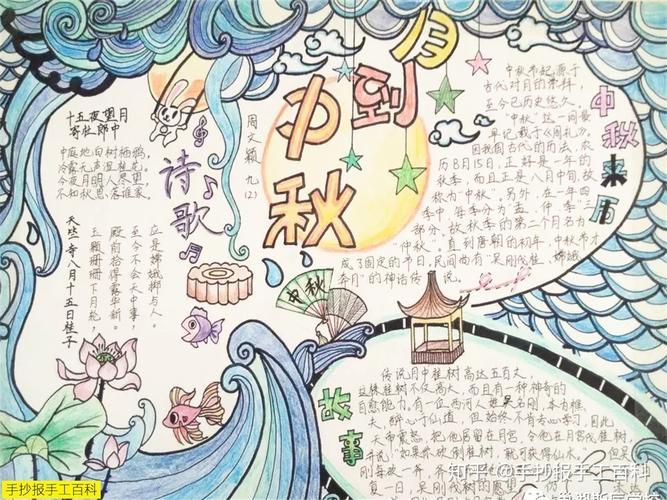 月到中秋
周文颖 九(2)
诗歌
十五夜望月
寄杜郎中
中庭地白树栖鸦,
冷露无声湿桂花。
今夜月明人尽望,
不知秋思落谁家
天竺寺八月十五日桂子
玉颗珊珊下月轮,
殿前拾得露华新。
至今不会天中事,
应是嫦娥掷与人。
中秋
中秋来历
中秋节起源于
古代对月的崇拜,
至今已历史悠久。
“中秋”这一词最
早记载于《周礼》,
因我国古代的历法,农
历8月15日,正好是一年的
秋季,而且正是八月中间,故
称为“中秋”。另外,在一年四
季中,每季分为“孟、仲、季”三
部分,故秋季的第二个月名为
“仲秋”。直到唐朝的初年,中秋节才
成了固定的节日,民间尚有“吴刚伐桂、嫦娥
奔月”的神话传说。
故事
传说月中桂树高达五百丈,
这株桂树不仅高大,而且有一种神奇的
自愈能力,有一位西河人姓吴名刚,本为樵
夫,醉心于仙道,但始终不肯专心学习,因此
天帝震怒,把他居留在月宫,令他在月宫伐桂树,
并说:“如果你砍倒桂树,就可获得仙术。”但吴
刚每砍一斧,
复一日,吴刚伐树的愿望
知乎 @手抄报手工百科
手抄报手工百科